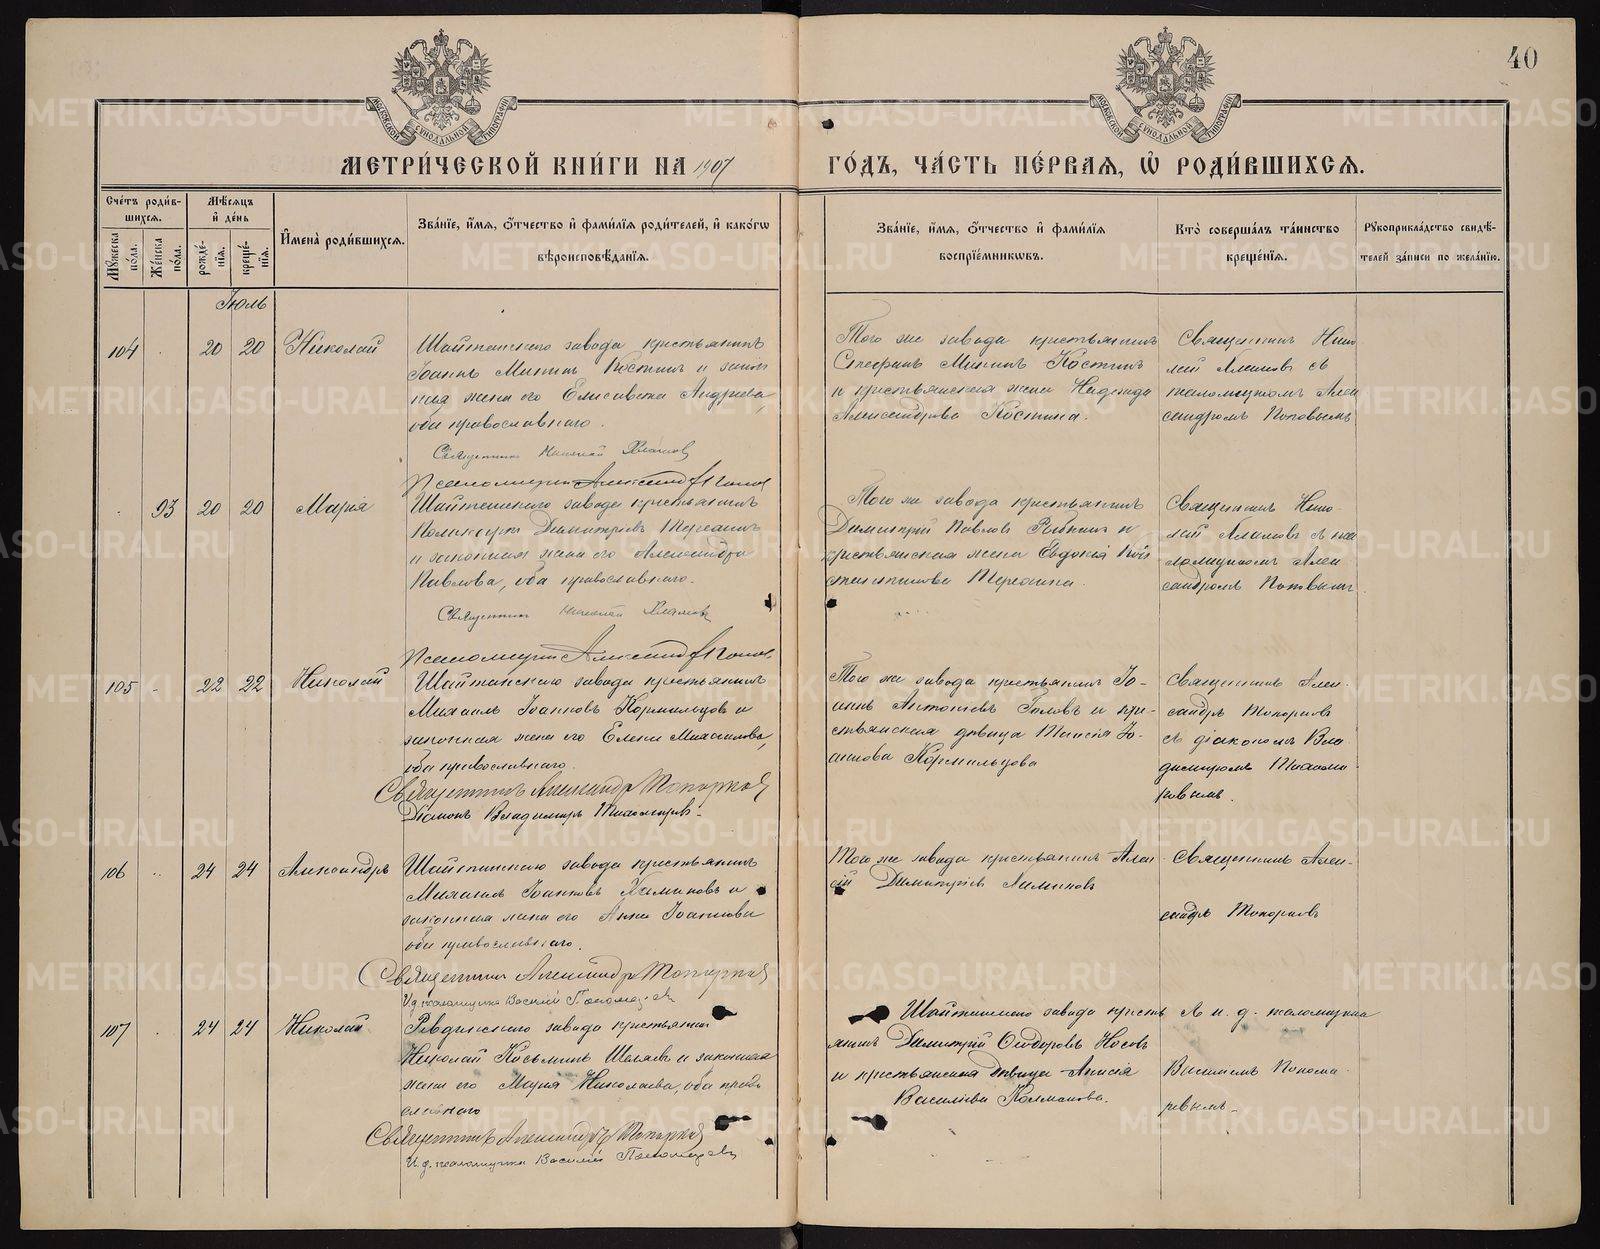 40
МОСКОВСКОЙ СѴНОДАЛЬНОЙ ТИПОГРАФІИ
МОСКОВСКОЙ СѴНОДАЛЬНОЙ ТИПОГРАФІИ
МЕТРИ́ЧЕСКОЙ КНИ́ГИ НА 1907
ГО́ДЪ, ЧА́СТЬ ПЕ́РВАЯ, Ѽ РОДИ́ВШИХСѦ.
Сче́тъ роди́в-
шихсѧ.
Мꙋ́жеска по́ла.
Же́нска по́ла.
Мѣ́сѧцъ
и҆ де́нь
рожде́-
нїѧ.
креще́-
нїѧ.
И҆мена̀ роди́вшихсѧ.
Зва́нїе, и҆́мѧ, ѻ҆́тчество и҆ фами́лїѧ роди́телей, и҆ како́гѡ
вѣроисповѣ́данїѧ.
Зва́нїе, и҆́мѧ, ѻ҆́тчество и҆ фами́лїѧ
воспрїе́мникѡвъ.
Кто̀ соверша́лъ та́инство
креще́нїѧ.
Рꙋкоприкла́дство свидѣ́-
телей за́писи по жела́нїю.
Іюль
104 20 20 Николай
Шайтанского завода крестьянинъ
Іоаннъ Мининъ Костинъ и закон
ная жена его Елисавета Андреева,
оба православнаго.
Священникъ Николай
Псаломщикъ Александр Попов
Того же завода крестьянинъ
Стефанъ Мининъ Костинъ
и крестьянская жена Надежда
Александрова Костина.
Священникъ Нико
лай съ
псаломщикомъ Алек
сандромъ Поповымъ
93 20 20 Марія
Шайтанского завода крестьянинъ
Димитріевъ
и законная жена его Александра
Павлова, оба православнаго.
Священникъ Николай
Псаломщикъ Александр Попов
Того же завода крестьянинъ
Димитрій Павловъ и
крестьянская жена Евдокія Кон
стантинова
Священникъ Нико-
лай съ пса
ломщикомъ Алек
сандромъ Поповымъ
105 22 22 Николай
Шайтанского завода крестьянинъ
Михаилъ Іоанновъ Кормильцовъ и
законная жена его Елена Михаилова,
оба православнаго.
Священникъ Александръ Топорковъ
Діаконъ Владимиръ Тихомировъ.
Того же завода крестьянинъ Іо-
аннъ Антоніевъ Головъ и кре-
стьянская дѣвица Таисія Іо-
аннова Кормильцова
Священникъ Алек-
сандръ Топорковъ
съ діакономъ Вла
димиромъ Тихоми
ровымъ.
106 24 24 Александръ
Шайтанского завода крестьянинъ
Михаилъ Іоанновъ и
законная жена его Анна Іоаннова
оба православнаго.
Священникъ Александръ Топорковъ
И.д. псаломщика Василій Пономарев
Того же завода крестьянинъ Алек
сій Димитріевъ
Священникъ Алек-
сандръ Топорковъ
107 24 24 Николай
Ревдинского завода крестьянинъ
Николай Косьминъ и законная
жена его Марія Николаева, оба право
славнаго
Священникъ Александръ Топорков
И.д. псаломщика Василій Пономарев
Шайтанского завода кресть
янинъ Димитрій Ѳеодоровъ Носовъ
и крестьянская дѣвица Анисія
Василіева
съ и. д. псаломщика
Василіемъ Понома-
ревымъ.
METRIKI.GASO-URAL.RU